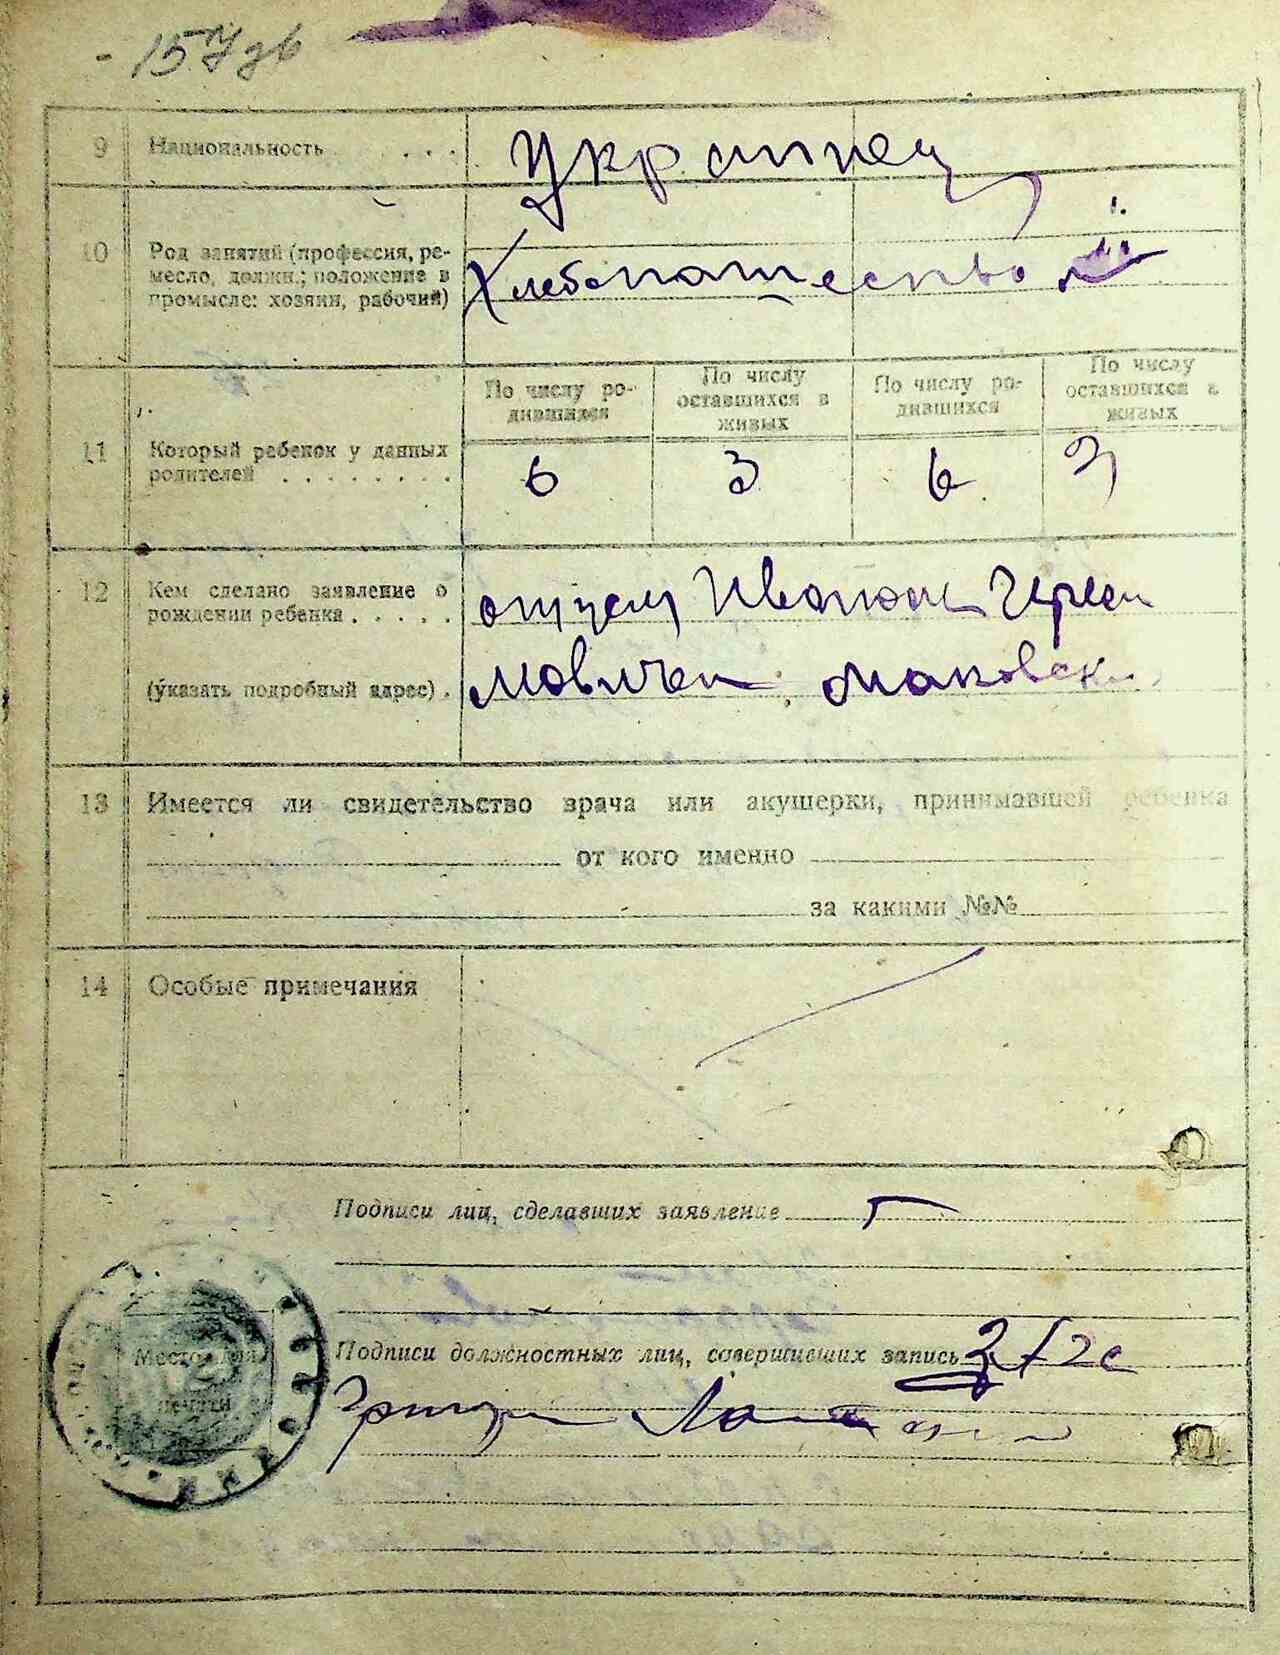 - 157 зв
9 Национальность . . .
Украинец
10 Род занятий (профессия, ре-
месло, должн.; положение в
промысле: хозяин, рабочий)
Хлебопашество
По числу ро-
дившихся
По числу
оставшихся в
живых
По числу ро-
дившихся
По числу
оставшихся в
живых
11 Который ребенок у данных
родителей . . . . . . . .
6 3 6 3
12 Кем сделано заявление о
рождении ребенка . . . . .
отцем Иваном
(указать подробный адрес) .
13 Имеется ли свидетельство врача или акушерки, принимавшей ребенка
от кого именно
за какими №№
14 Особые примечания
Подписи лиц, сделавших заявление
Место для
печати
Подписи должностных лиц, совершивших запись